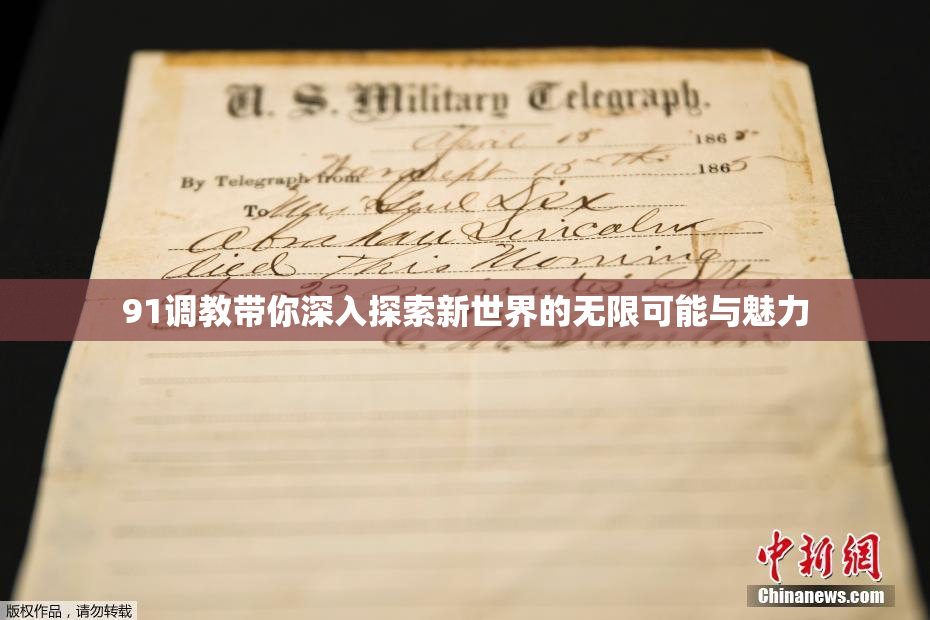 U. S. Military Telegraph.
April 15 1865
By Telegraph from War Dept 15th 1865
To Maj Genl Dix
Abraham Lincoln
died This Morning
22 minutes after
91调教带你深入探索新世界的无限可能与魅力
中新網
Chinanews.com
版权作品，请勿转载